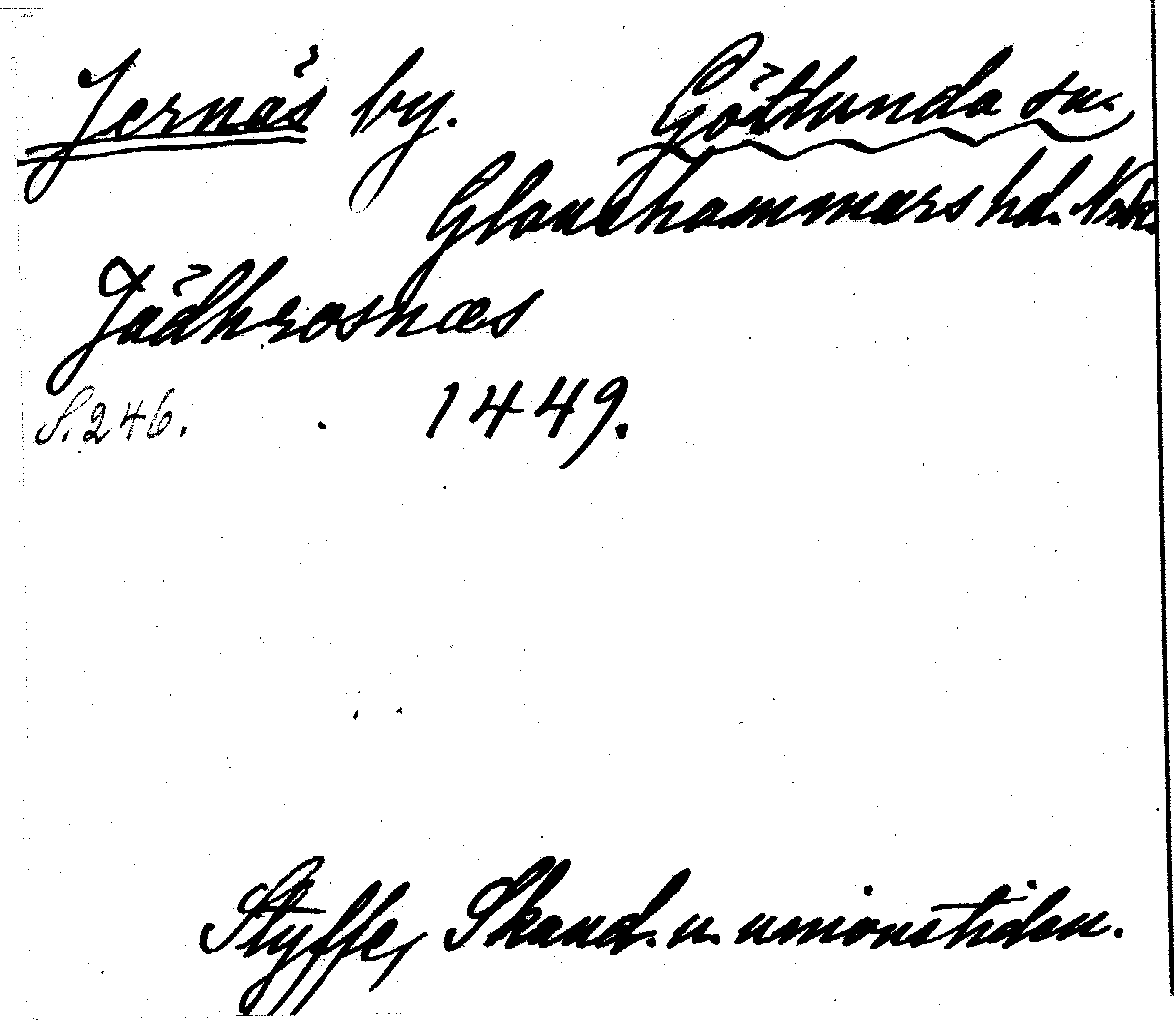 Jernäs by. Götlunda sn.
Glanshammars hd. Nrke
Jädhrosnæs
S. 246. 1449.
Styffe, Skand. u. unionstiden.